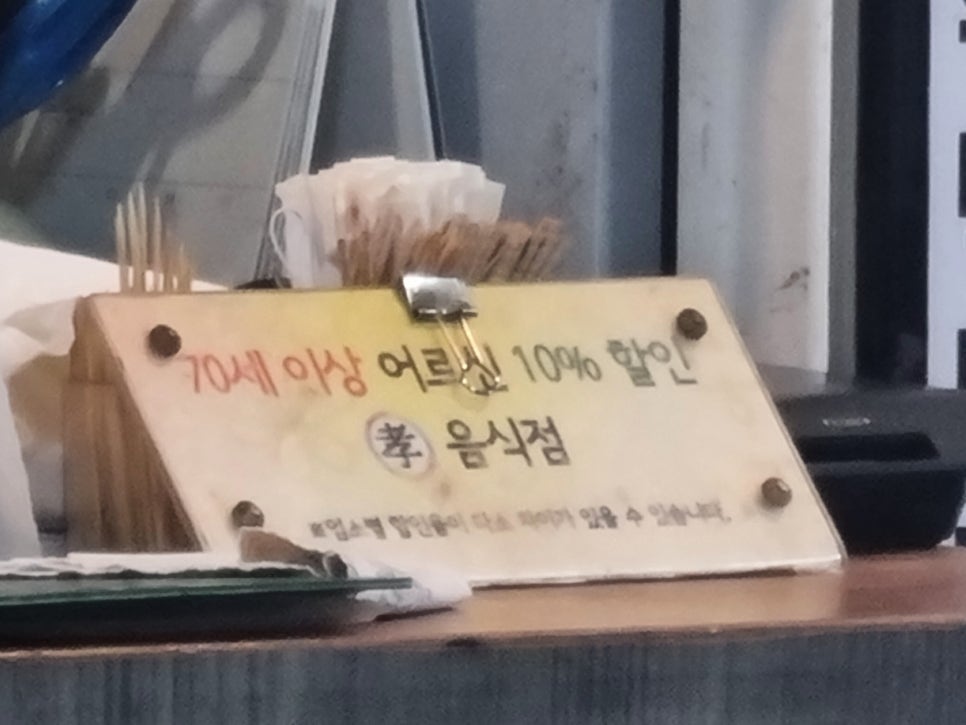 70세 이상 어르신 10% 할인
孝 음식점
※업소별 할인율이 다소 차이가 있을 수 있습니다.